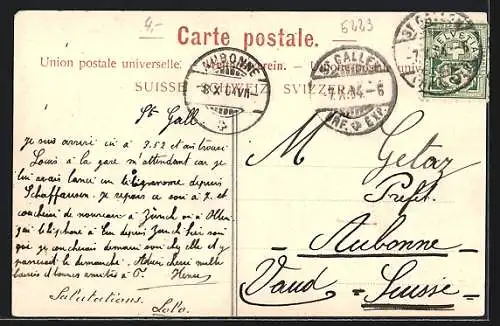 4,-
6223
Carte postale.
Union postale universelle. Weltpostverein.
SUISSE SCHWEIZ SVIZZERA
AUBONNE
8 X 04 VII
ST. GALLEN
7.X.04.-6
BRF. EXP.
HELVETIA
St Gall
je suis arrivé ici à 7.52 et ai trouvé
Louis à la gare m'attendant car je
lui avais lancé un télégramme depuis
Schaffausen. Je repars ce soir à 7. et
coucherai de nouveau à Zurich où à Olten
j'ai téléphoné à depuis Zurich hier soir
que je coucherais demain soir chez elle et y
passerait le dimanche. mille
baisers et bonnes amitiés à
Salutations.
Lolo.
M Getaz
Préfet.
Aubonne
Vaud Suisse